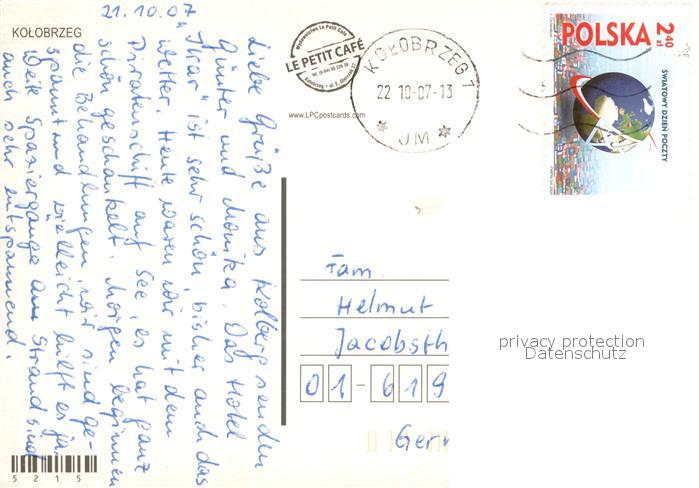 21.10.07
KOŁOBRZEG
Liebe Grüße aus Kolberg senden
Günter und Monika. Das Hotel
"Ikar" ist sehr schön, bisher auch das
Wetter. Heute waren wir mit dem
Piratenschiff auf See, es hat ganz
schön geschaukelt. Morgen beginnen
die Behandlungen, wir sind ge-
spannt und vielleicht hilft es ja.
Weite Spaziergänge am Strand sind
auch sehr entspannend.
Wydawnictwo Le Petit Café
LE PETIT CAFÉ
www.LPCpostcards.com
KOŁOBRZEG 1
22 10-07-13
JM
POLSKA 2,40 zł
ŚWIATOWY DZIEŃ POCZTY
Fam.
Helmut
Jacobsth
privacy protection
Datenschutz
01-619
Gerr
5215